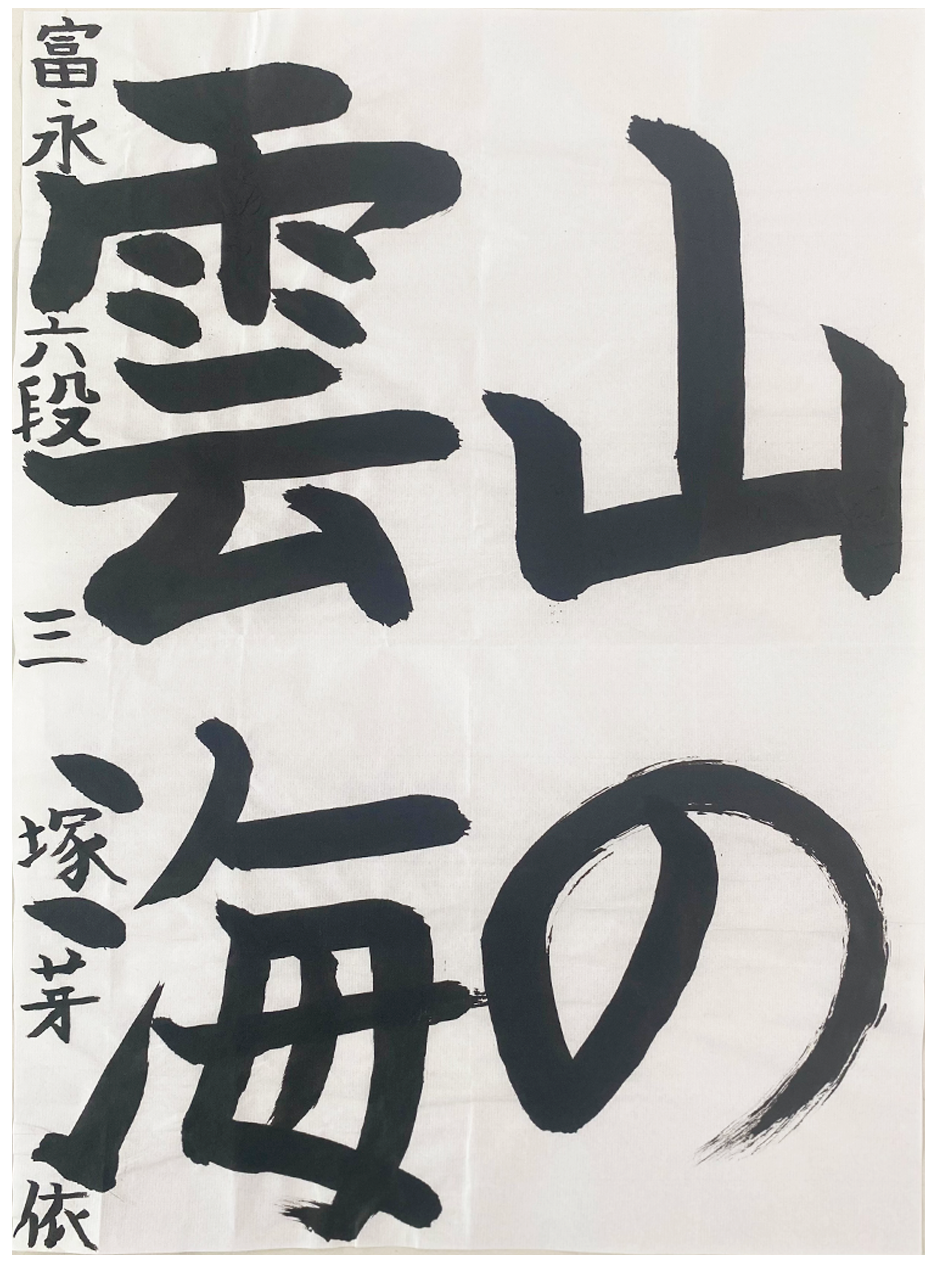 山の
雲海
富永 六段 三 塚 芽 依